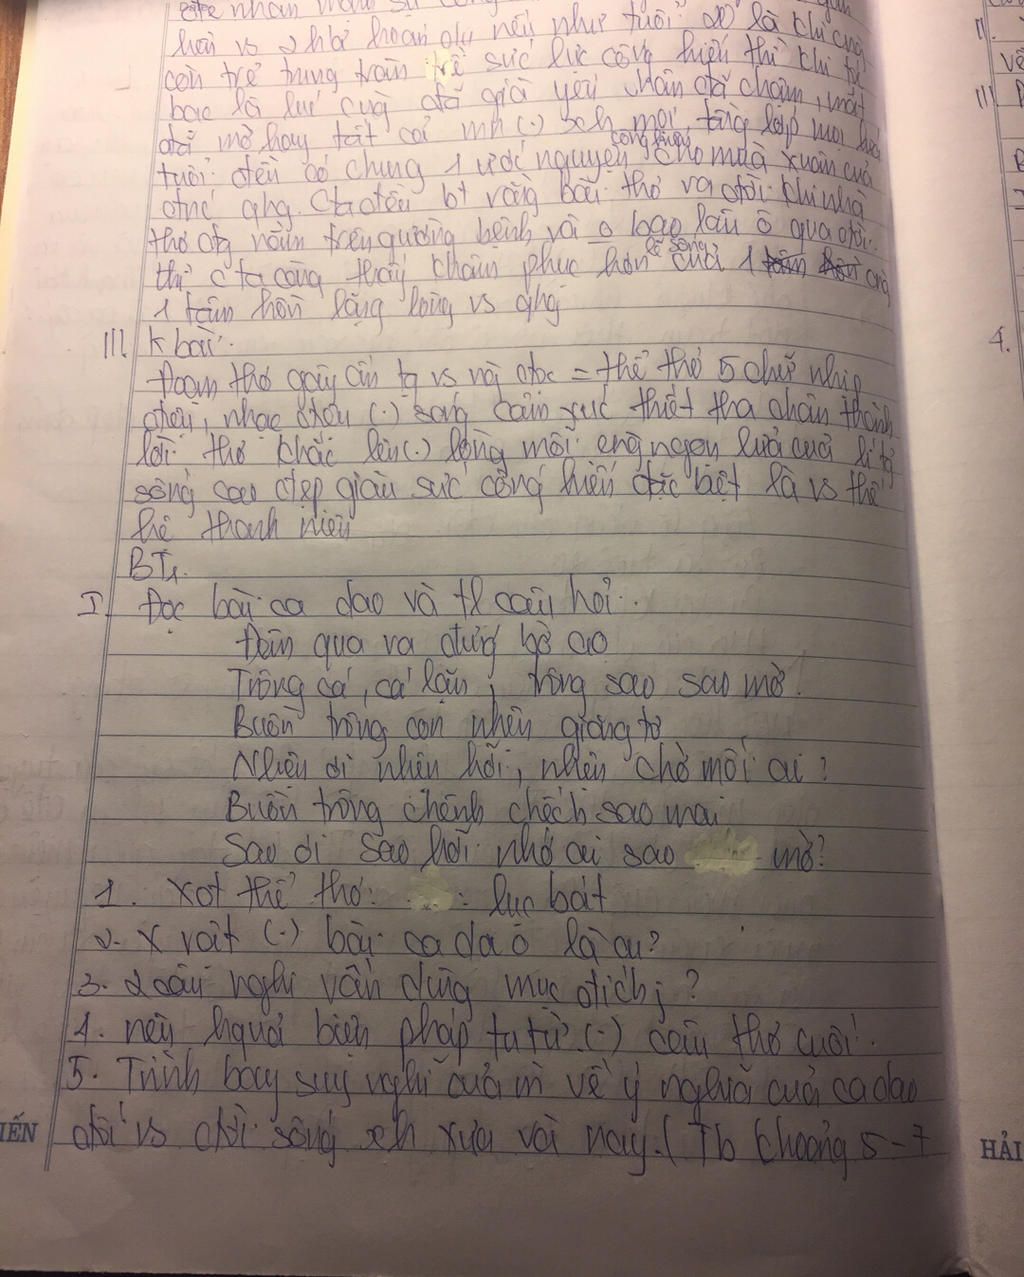 nhân
hoá vs 2 hả hoán dụ nếu như tuổi 20 là khi cng
còn trẻ trung tràn trề sức lực cống hiến thì khi tóc
bạc là lúc cug đã già yếu chân đã chậm, mắt
đã mờ hay tất cả mn (.) xh mọi tầng lớp mọi lứa
tuổi đều có chung 1 ước nguyện cống hiến cho mùa xuân của
đnc qhg. Cta đều bt rằng bài thơ ra đời khi nhà
thơ đg nằm trên giường bệnh và o bao lâu ô qua đời
thì cta càng thấy khâm phục hơn lẽ sống của 1
1 tâm hồn lặng lòng vs qhg
III. K bài:
Đoạn thơ gây ấn tg vs ng đọc = thể thơ 5 chữ nhịp
điệu, nhạc điệu (.) sáng cảm xúc thiết tha chân thành
lời thơ khắc lên (.) lòng mỗi cng ngọn lửa của lí tg
sống cao đẹp giàu sức cống hiến đặc biệt là vs thế
hệ thanh niên
BT1.
I. Đọc bài ca dao và tl câu hỏi.
Đêm qua ra đứng bờ ao
Trông cá, cá lặn, trông sao sao mờ.
Buồn trông con nhện giăng tơ
Nhện ơi nhện hỡi, nhện chờ mối ai?
Buồn trông chênh chếch sao mai
Sao ơi sao hỡi nhớ ai sao mờ?
1. Xđt thể thơ: lục bát
2. N vật (.) bài ca dao là ai?
3. 2 câu nghi vấn dùng mục đích j?
4. nêu hquả biện pháp tu từ (.) câu thơ cuối.
5. Trình bày suy nghĩ của m về ý nghĩa của ca dao
đối vs đời sống xh xưa và nay. (Tb khoảng 5-7
IẾN
HẢI
II.
III
4.